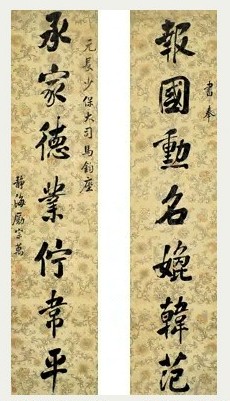 書奉
報國勳名媲韓范
元長少保大司馬鈞座
承家德業佇韋平
靜海勵宗萬